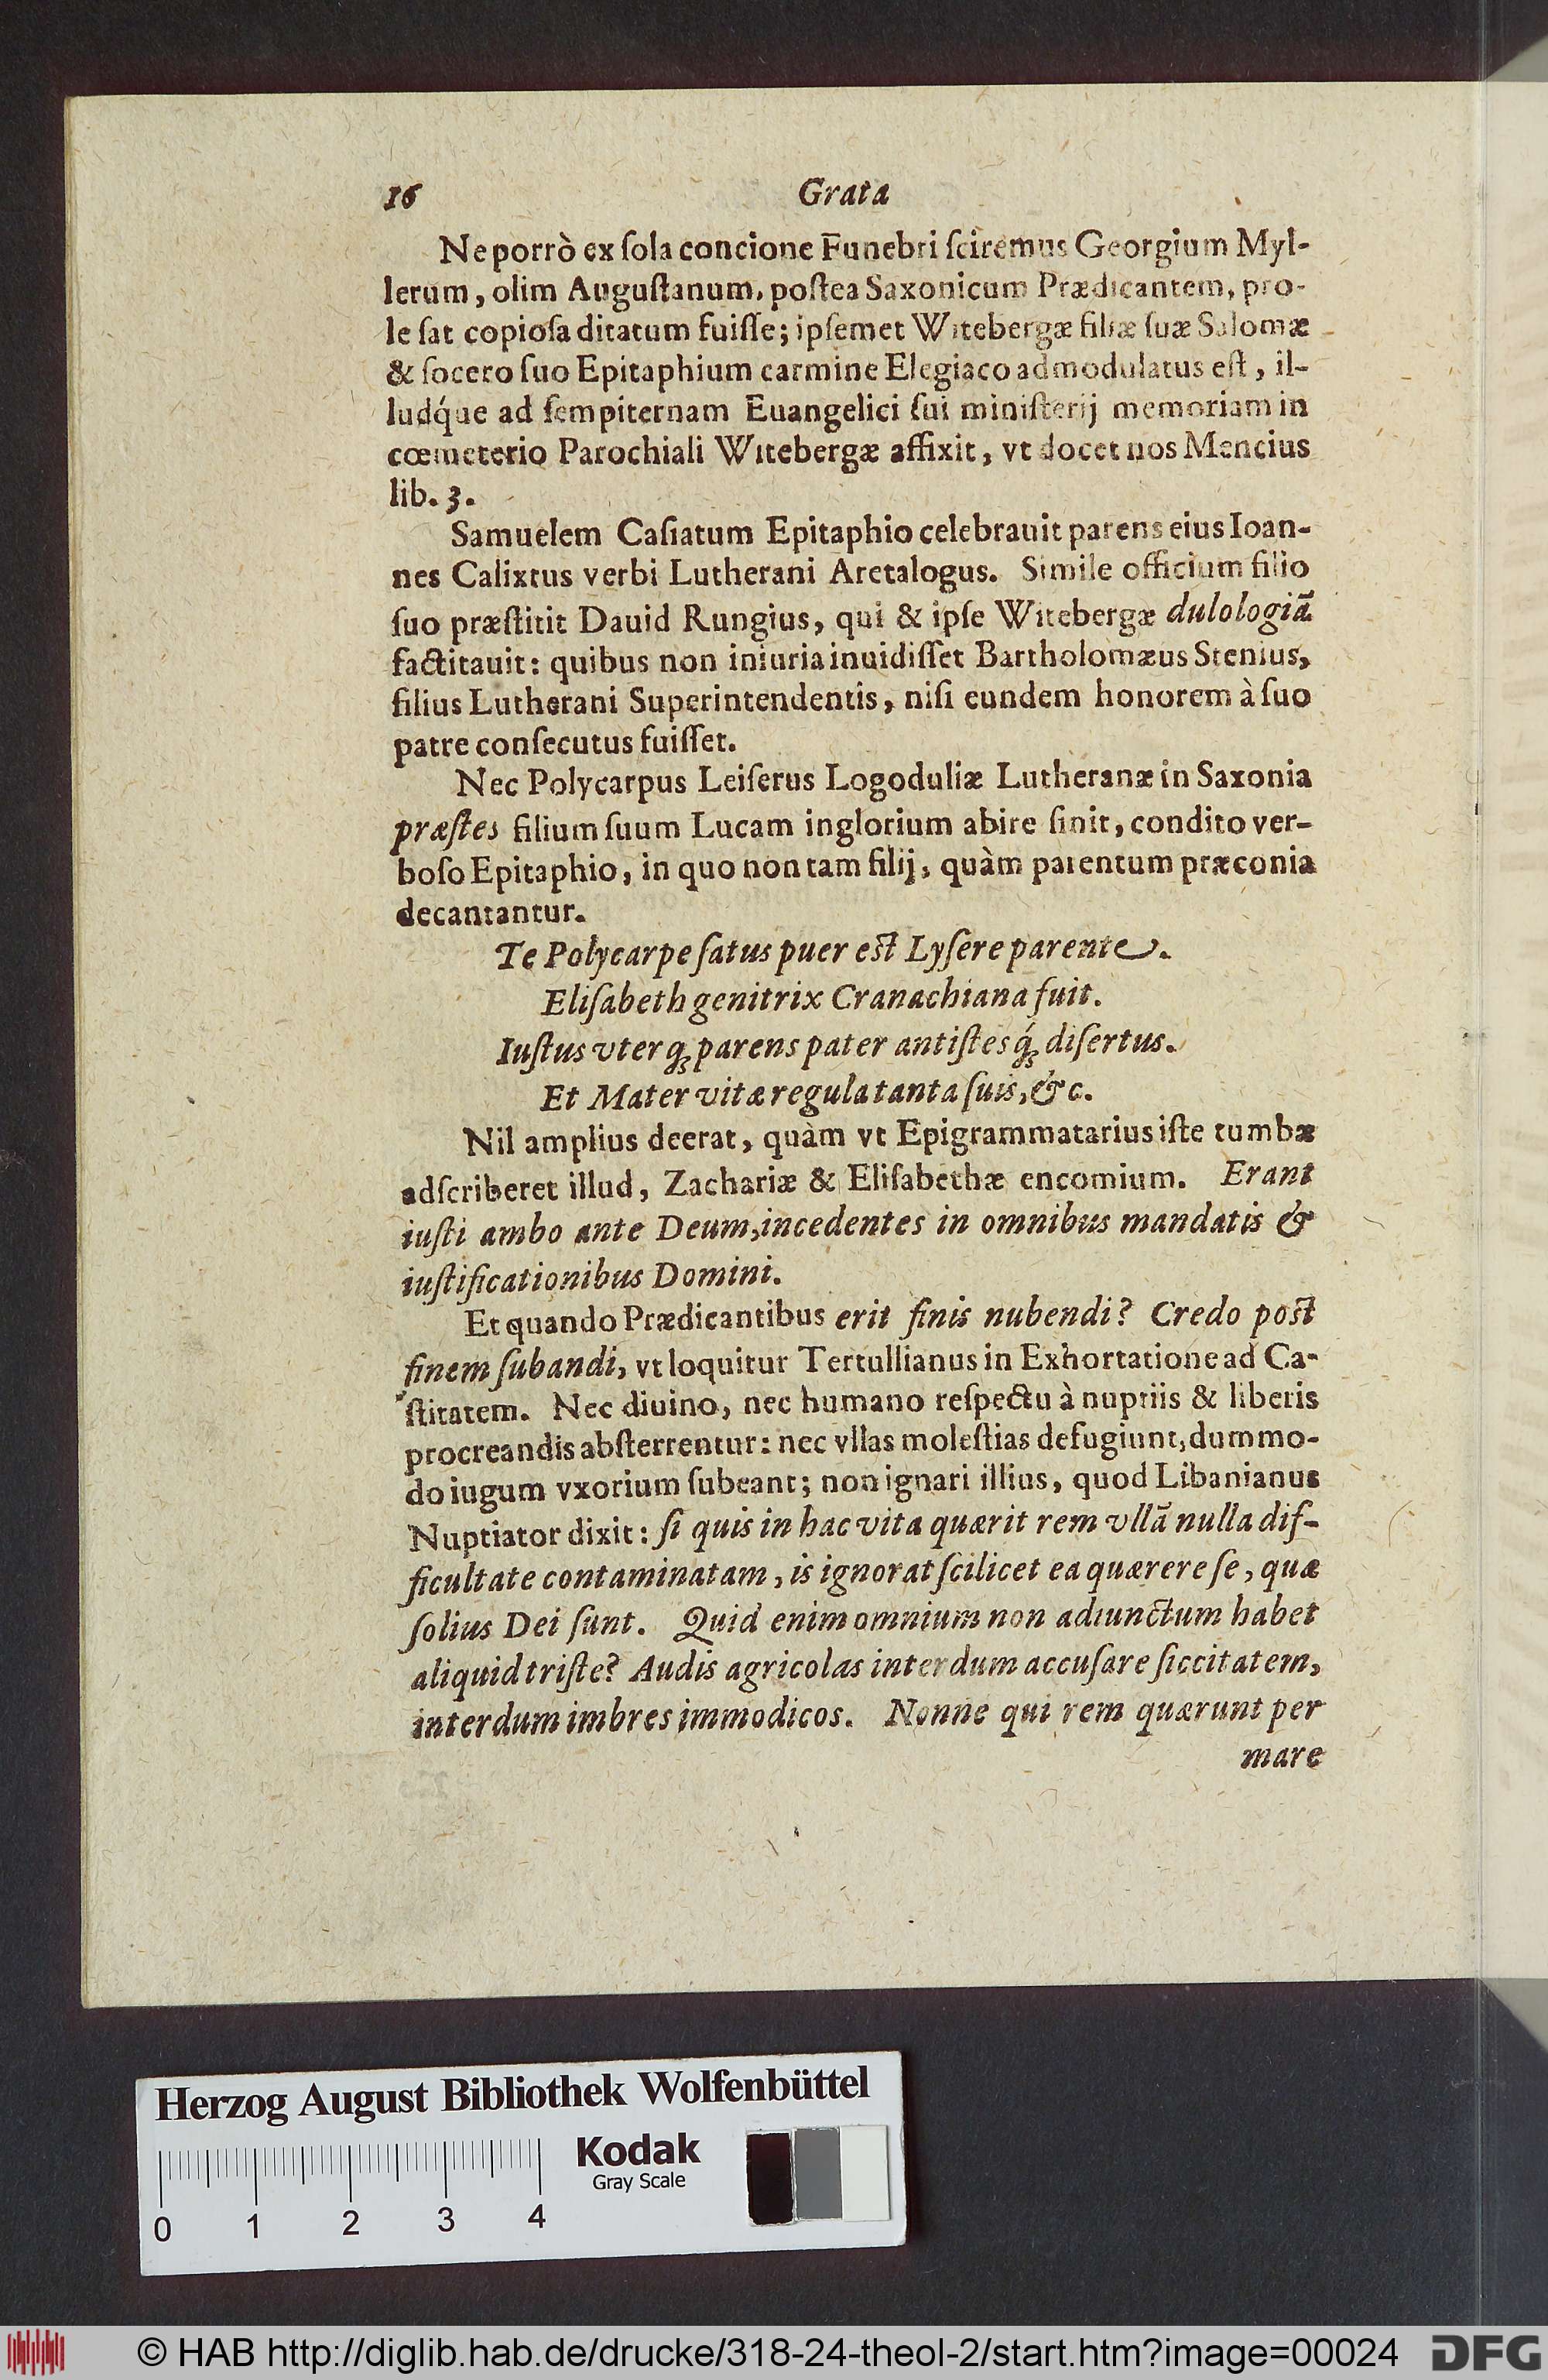 16 Grata
Ne porrò ex ſola concione Funebri ſciremus Georgium Myl-
lerum, olim Auguſtanum, poſtea Saxonicum Prædicantem, pro-
le ſat copioſa ditatum fuiſſe; ipſemet Witebergæ filiæ ſuæ Salomæ
& ſocero ſuo Epitaphium carmine Elegiaco admodulatus eſt, il-
ludq́ue ad ſempiternam Euangelici ſui miniſterij memoriam in
cœmeterio Parochiali Witebergæ affixit, vt docet nos Mencius
lib. 3.
Samuelem Caſiatum Epitaphio celebrauit parens eius Ioan-
nes Calixtus verbi Lutherani Aretalogus. Simile officium filio
ſuo præſtitit Dauid Rungius, qui & ipſe Witebergæ dulologiã
factitauit: quibus non iniuria inuidiſſet Bartholomæus Stenius,
filius Lutherani Superintendentis, niſi eundem honorem à ſuo
patre conſecutus fuiſſet.
Nec Polycarpus Leiſerus Logoduliæ Lutheranæ in Saxonia
præſtes filium ſuum Lucam inglorium abire ſinit, condito ver-
boſo Epitaphio, in quo non tam filij, quàm parentum præconia
decantantur.
Te Polycarpe ſatus puer eſt Lyſere parente.
Eliſabeth genitrix Cranachiana fuit.
Iuſtus vterq; parens pater antiſtesq́; diſertus.
Et Mater vitæ regula tanta ſuis, &c.
Nil amplius deerat, quàm vt Epigrammatarius iſte tumbæ
adſcriberet illud, Zachariæ & Eliſabethæ encomium. Erant
iuſti ambo ante Deum, incedentes in omnibus mandatis &
iuſtificationibus Domini.
Et quando Prædicantibus erit finis nubendi? Credo poſt
finem ſubandi, vt loquitur Tertullianus in Exhortatione ad Ca-
ſtitatem. Nec diuino, nec humano reſpectu à nuptiis & liberis
procreandis abſterrentur: nec vllas moleſtias defugiunt, dummo-
do iugum vxorium ſubeant; non ignari illius, quod Libanianus
Nuptiator dixit: ſi quis in hac vita quærit rem vllã nulla dif-
ficultate contaminatam, is ignorat ſcilicet ea quærere ſe, quæ
ſolius Dei ſunt. Quid enim omnium non adiunctum habet
aliquid triſte? Audis agricolas interdum accuſare ſiccitatem,
interdum imbres immodicos. Nonne qui rem quærunt per
mare
Herzog August Bibliothek Wolfenbüttel
Kodak
Gray Scale
0 1 2 3 4
© HAB http://diglib.hab.de/drucke/318-24-theol-2/start.htm?image=00024
DFG